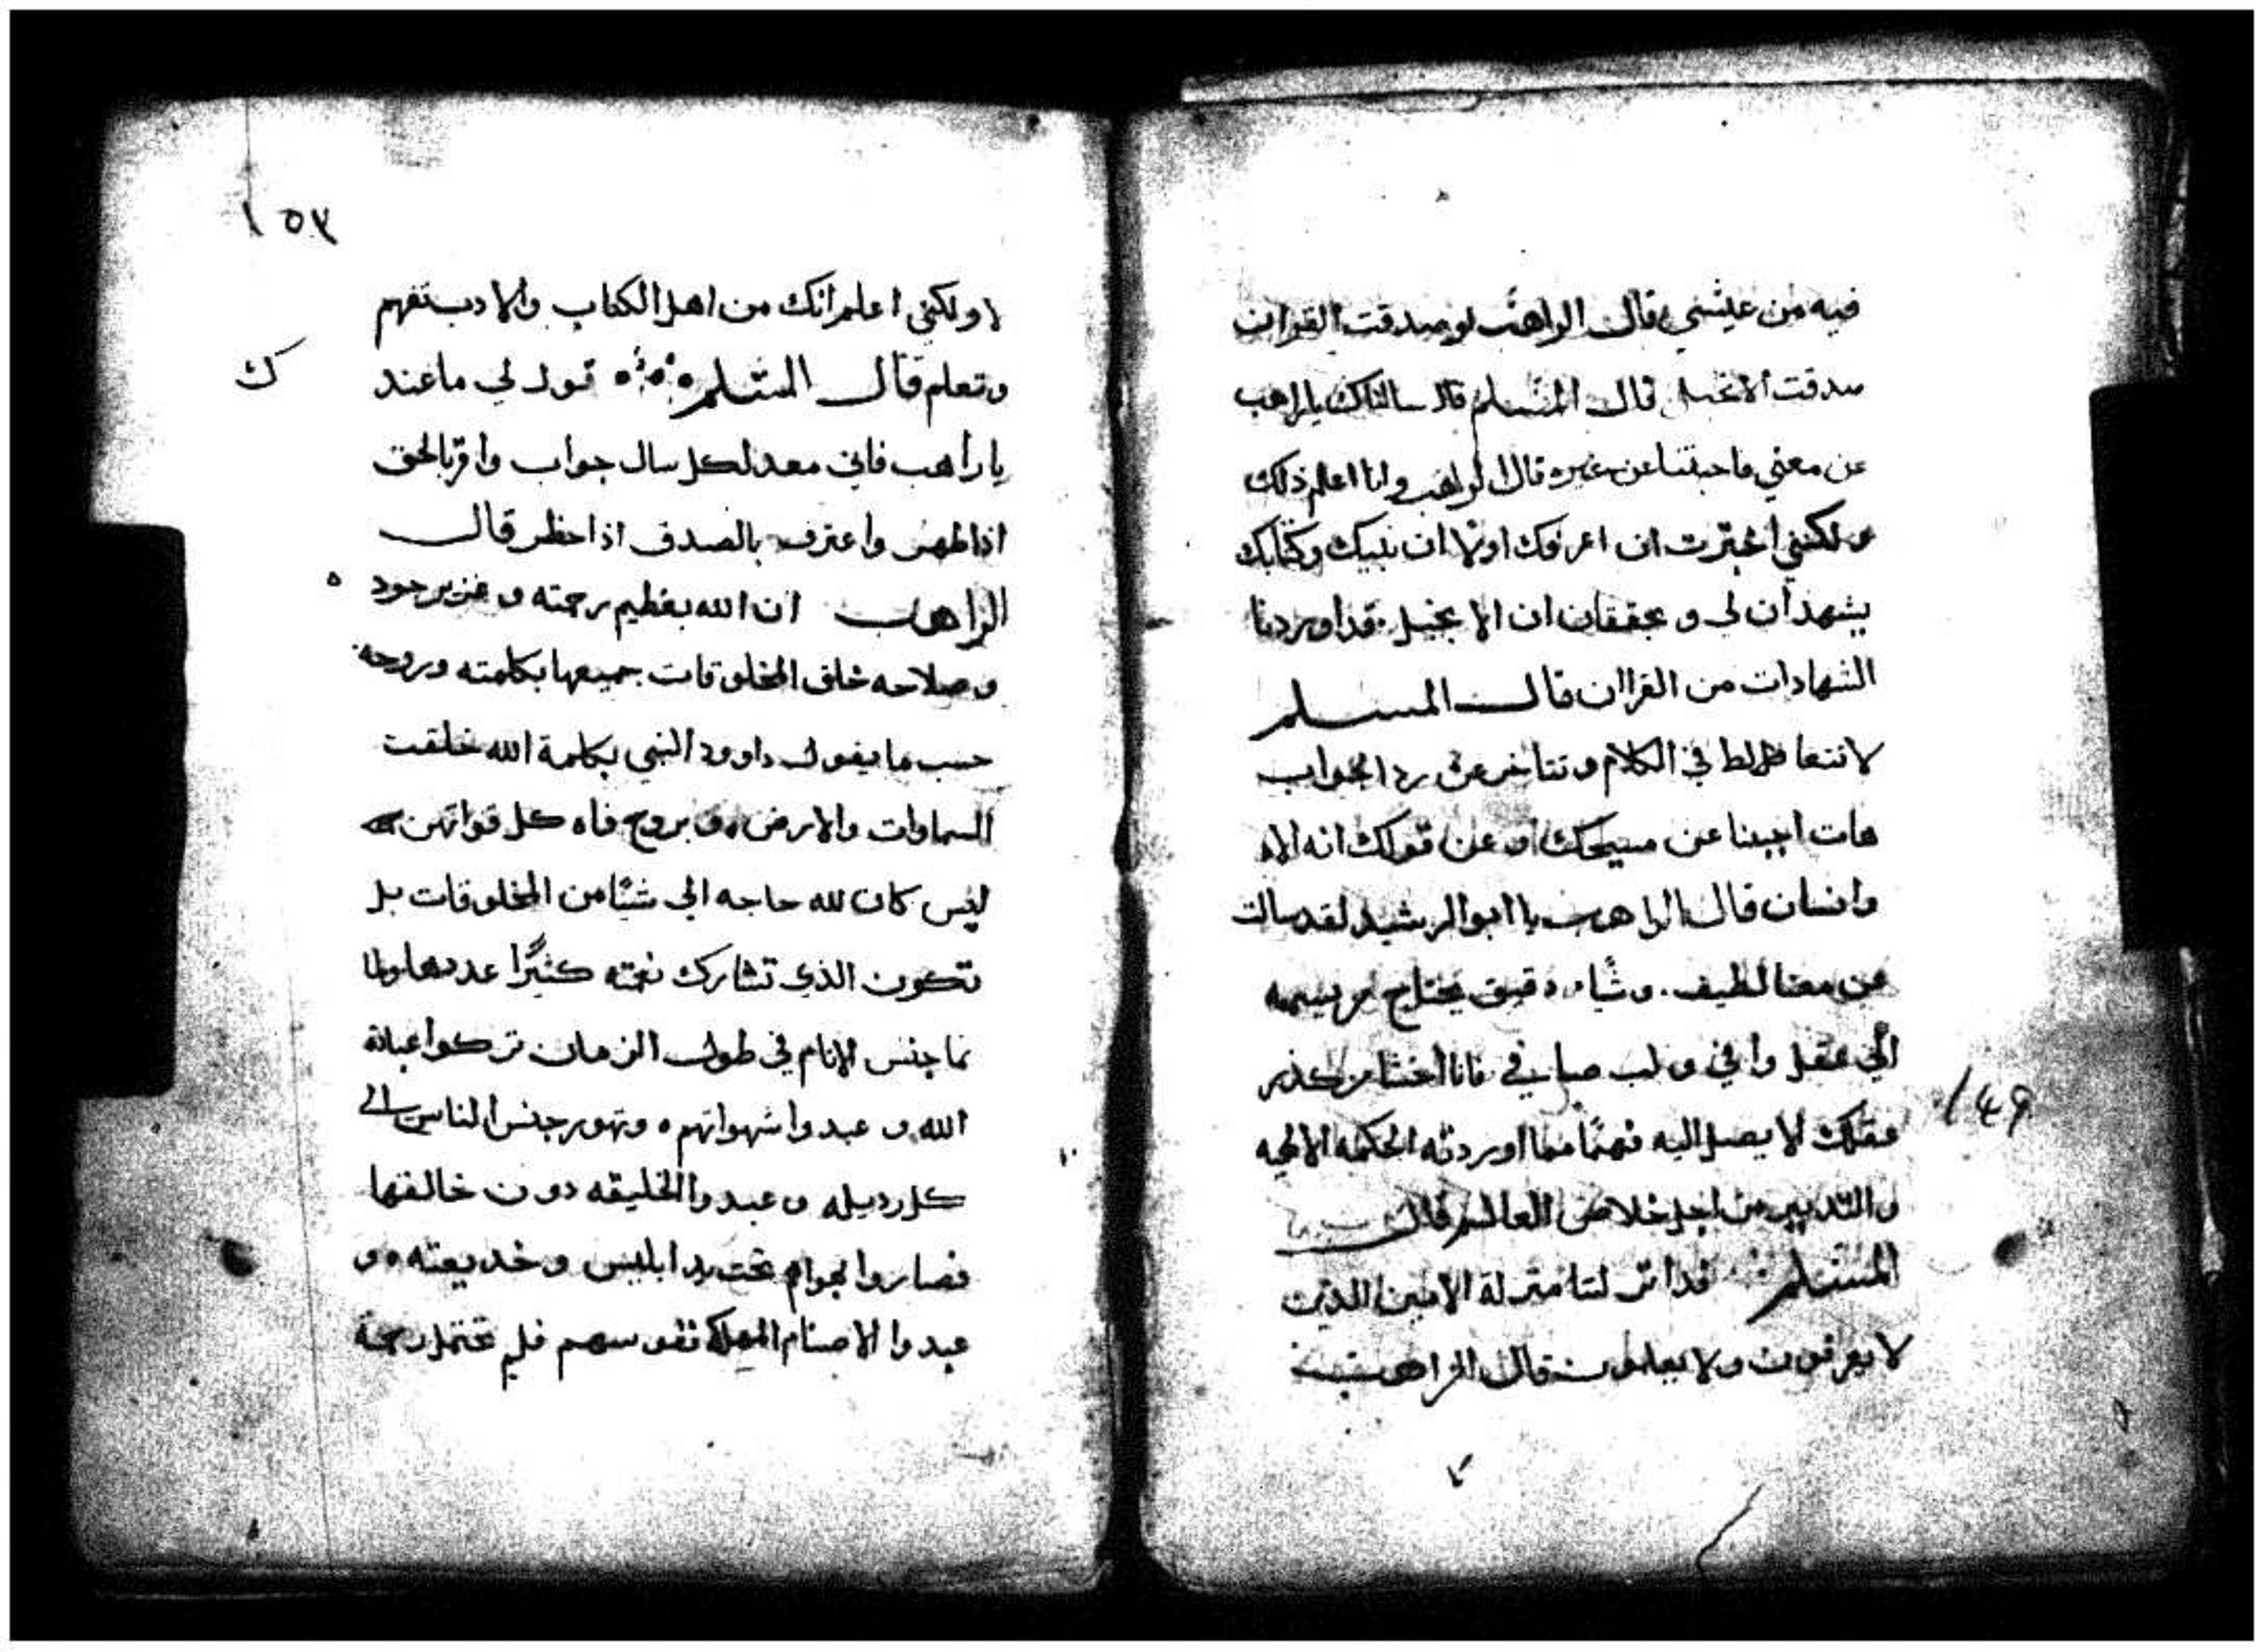 فيه من عيشي قال الراهب لو صدقت القران
صدقت الانجيل قال المسلم قد سالناك يا راهب
عن معني فاجبتنا عن غيره قال الراهب وانا اعلم ذلك
ولكنني اخترت ان اعرفك اولا ان نبيك وكتابك
يشهدان لي ويحققان ان الانجيل قد اوردنا
الشهادات من القراان قال المسلم
لا تتعا في الكلام وتتاخر عن رد الجواب
هات اجيبنا عن مسيحك او عن قولك انه الاه
وانسان قال الراهب يا ابو الرشيد لقد سالت
عن معنا لطيف. وشياء دقيق يحتاج
الي عقل وافي ولب صافي فانا اخشا من كدر
عقلك لا يصل اليه فهمًا مما اوردته الحكمه الالهيه
والتدبير من اجل خلاص العالم قال
المسلم قد انزلتنا منزلة الاميين الذين
لا يعرفون ولا يعلمون قال الراهب
149
١٥٣
لا ولكني اعلم انك من اهل الكتاب والادب تفهم
وتعلم قال المسلم قول لي ما عند
ك
يا راهب فاني معد لكل سال جواب واقر بالحق
اذا ظهر واعترف بالصدق اذا حظر قال
الراهب ان الله بعظيم رحمته وعزير جود
ه
وصلاحه خلق المخلوقات جميعها بكلمته وروحه
حسب ما يقول داوود النبي بكلمة الله خلقت
السماوات والارض وبروح فاه كل قواتهن
ليس كان لله حاجه الي شيًا من المخلوقات بل
تكون الذي تشارك نعمته كثيرًا عددها ولما
نما جنس الانام في طول الزمان تركوا عبادة
الله وعبدوا شهواتهم وتهور جنس الناس الي
كل رديله وعبدوا الخليقه دون خالقها
فصاروا تحت يد ابليس وخديعته و
عبدوا الاصنام المهلكة نفوسهم فلم تحتمل رحمة